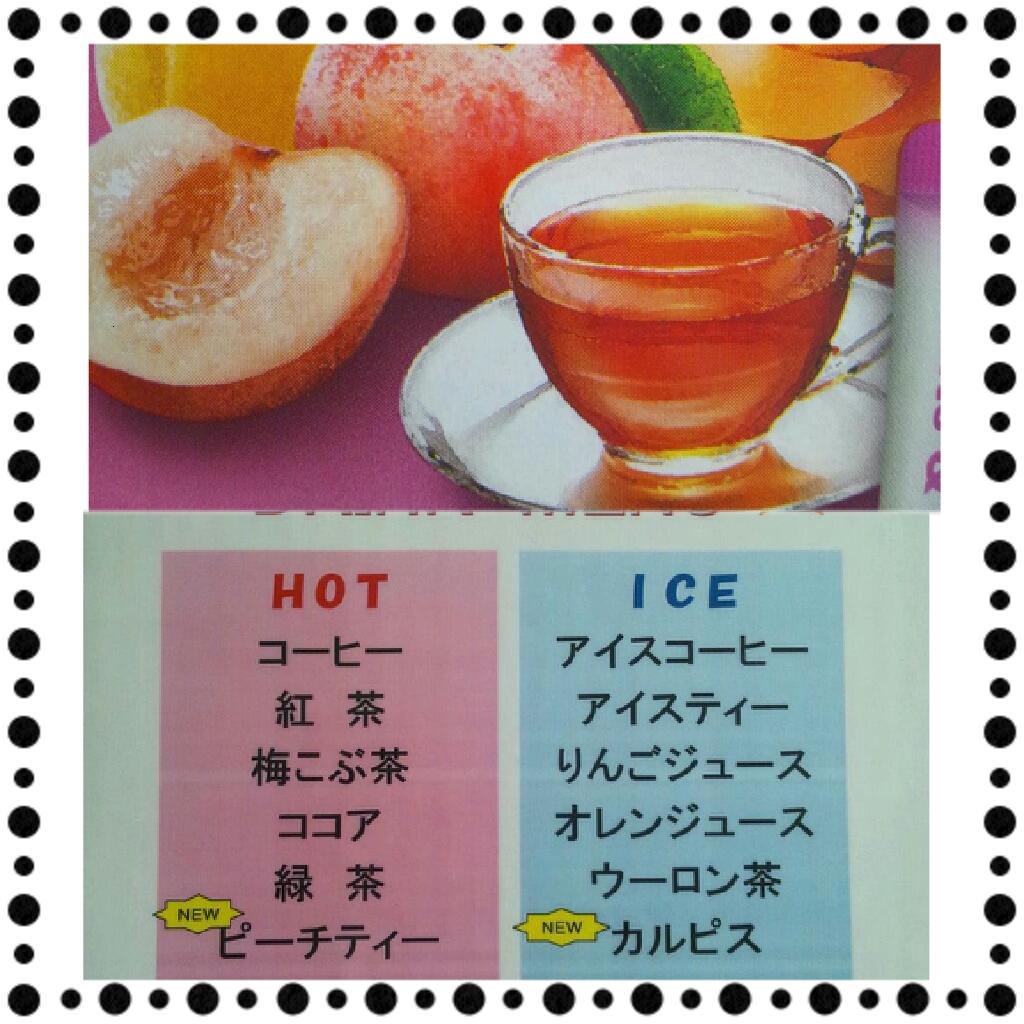 HOT
コーヒー
紅 茶
梅こぶ茶
ココア
緑 茶
NEW
ピーチティー
ICE
アイスコーヒー
アイスティー
りんごジュース
オレンジュース
ウーロン茶
NEW
カルピス